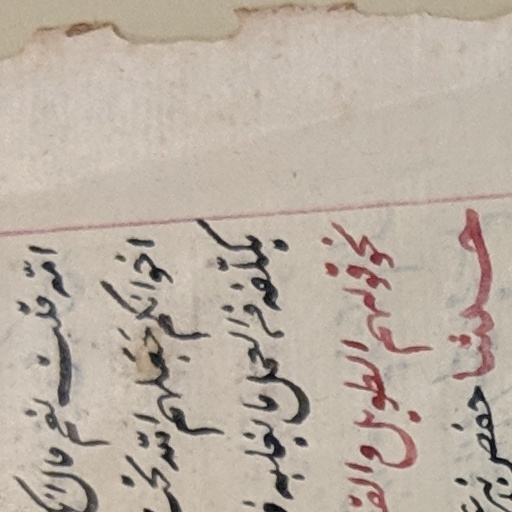 امّه قلت نعم قال
اخوانكم جَعَلهم الله تحت
يكلّفه من العمل ما يغلبه
نحو قولهم الطويل والقـ
حدثنا حفص بن